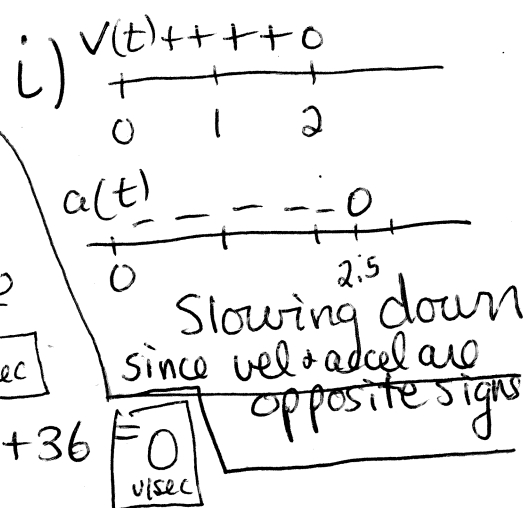 i) V(t)++++0
0 1 2
a(t) - - - - - 0
0 2.5
Slowing down
since vel & accel are
opposite signs
ec
+36 = 0
v/sec